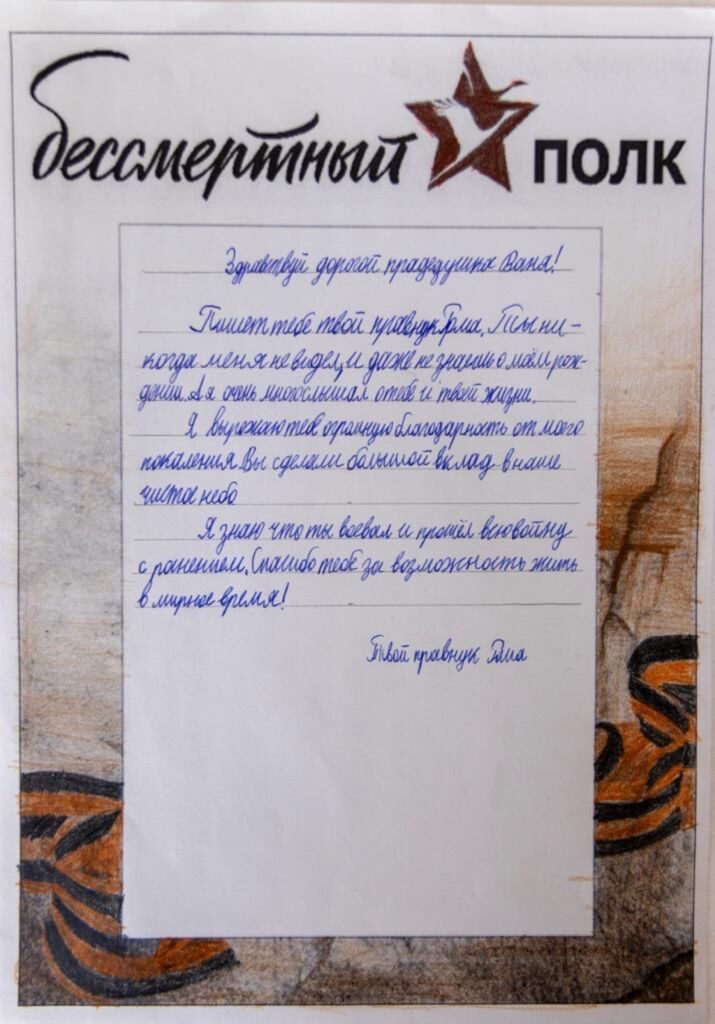 бессмертный полк
Здравствуй дорогой прадедушка Ваня!
Пишет тебе твой правнук Рома. Ты ни-
когда меня не видел, и даже не знаешь о моём рож-
дении. А я очень много слышал о тебе и твоей жизни.
Я выражаю тебе огромную благодарность от моего
поколения. Вы сделали большой вклад в наше
чистое небо
Я знаю что ты воевал и прошёл всю войну
с ранением. Спасибо тебе за возможность жить
в мирное время!
Твой правнук Рома